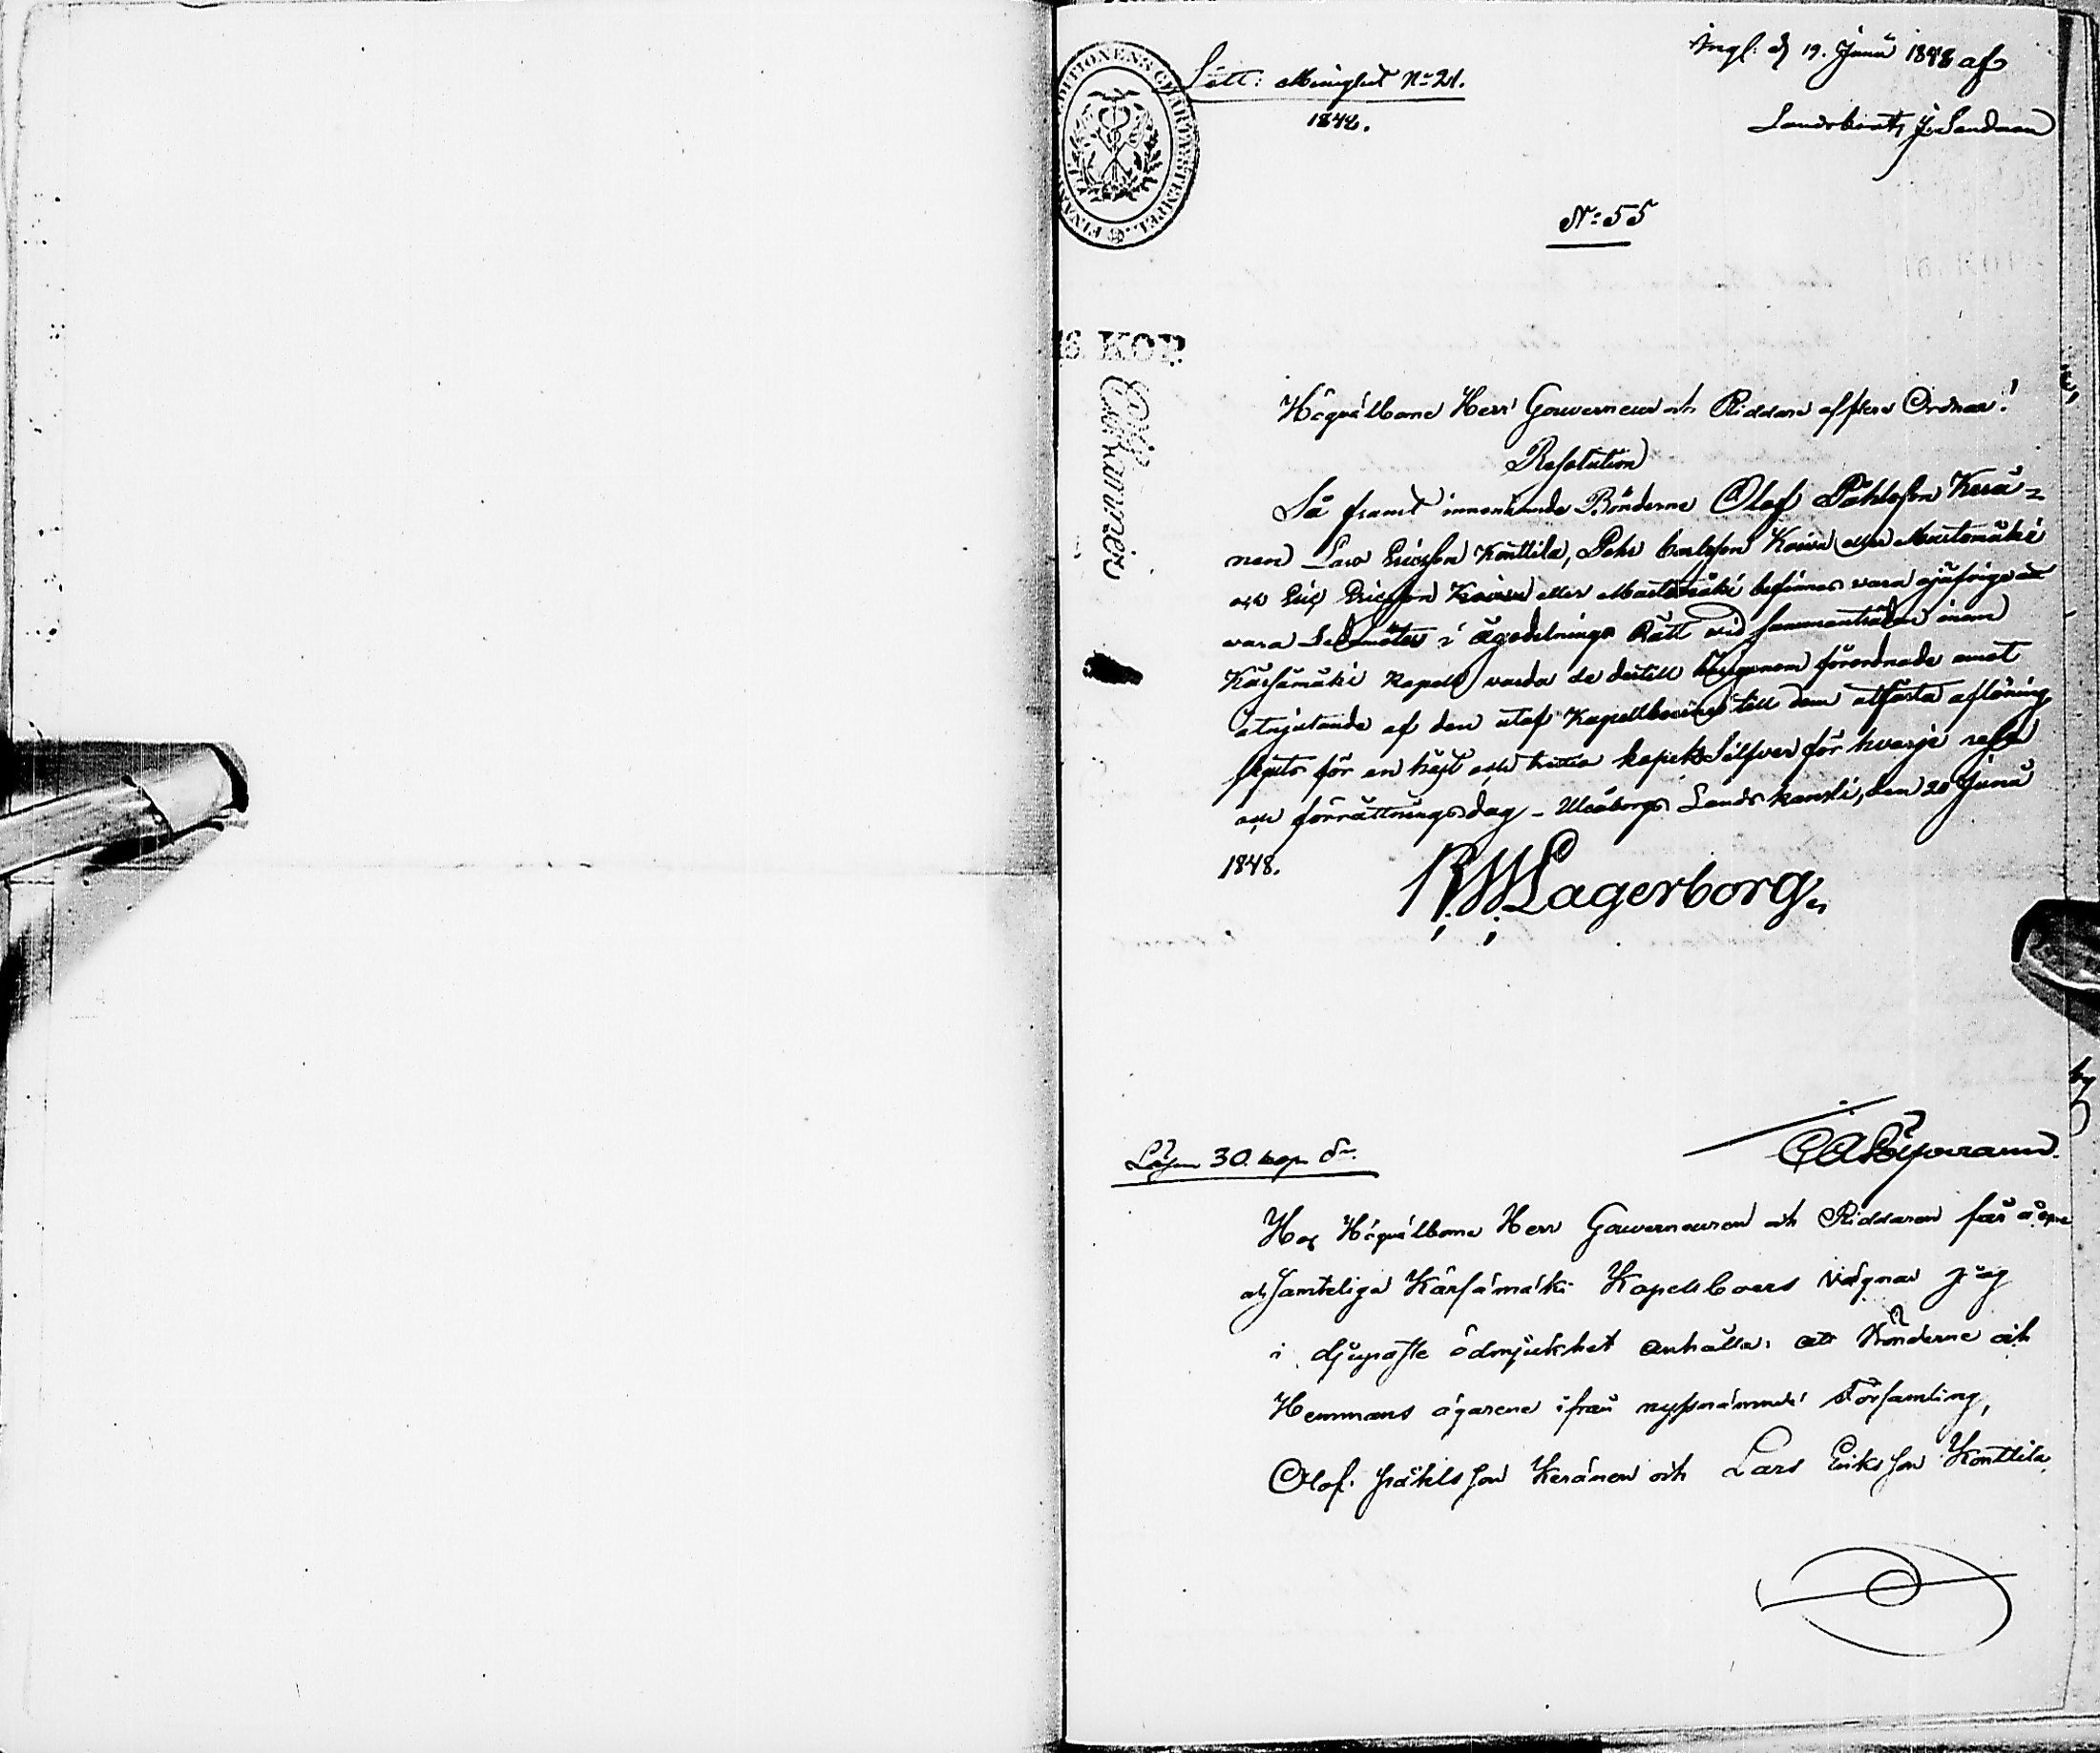 Ingl. d 19. Junii 1848 af
Landskrifts J. Sandman
Litt: Mänght No 21.
1848.
No: 55
EXPEDITIONENS CHARTÆSTEMPEL. FINANS
KOP.
Högvälborne Herr Gouverneur och Riddare af flere Ordnar!
Resolution
Så framt innenämnde Bönderne Olof Påhlsson Kerä-
nen Lars Ericsson Konttila, Pehr Carlsson Koivu eller Martomäki
och Eric Ericsson Koivu eller Martomäki befinnas vara ojäfvige att
vara Ledamöter i Ägodelnings Rätt vid sammanträden inom
Kärsämäki Kapell varda de dertill härigenom förordnade emot
åtnjutande af den utaf Kapellboerne till dem utfästa aflöning
skjuts för en häst och trettio kopek Silfver för hvarje rese
och förrättningsdag - Uleåborgs Lands kansli, den 20 Junii
1848.
R W Lagerborg
Lösen 30. kop Sr.
Hos Högvälborne Herr Gouverneuren och Riddaren får å egne
och samteliga Kärsämäki Kapellboers vägnar jag
i djupaste ödmjukhet anhålla, att Bönderne och
Hemmans ägarene ifrån nyssnämnde Församling,
Olof Påhlsson Keränen och Lars Eriksson Konttila